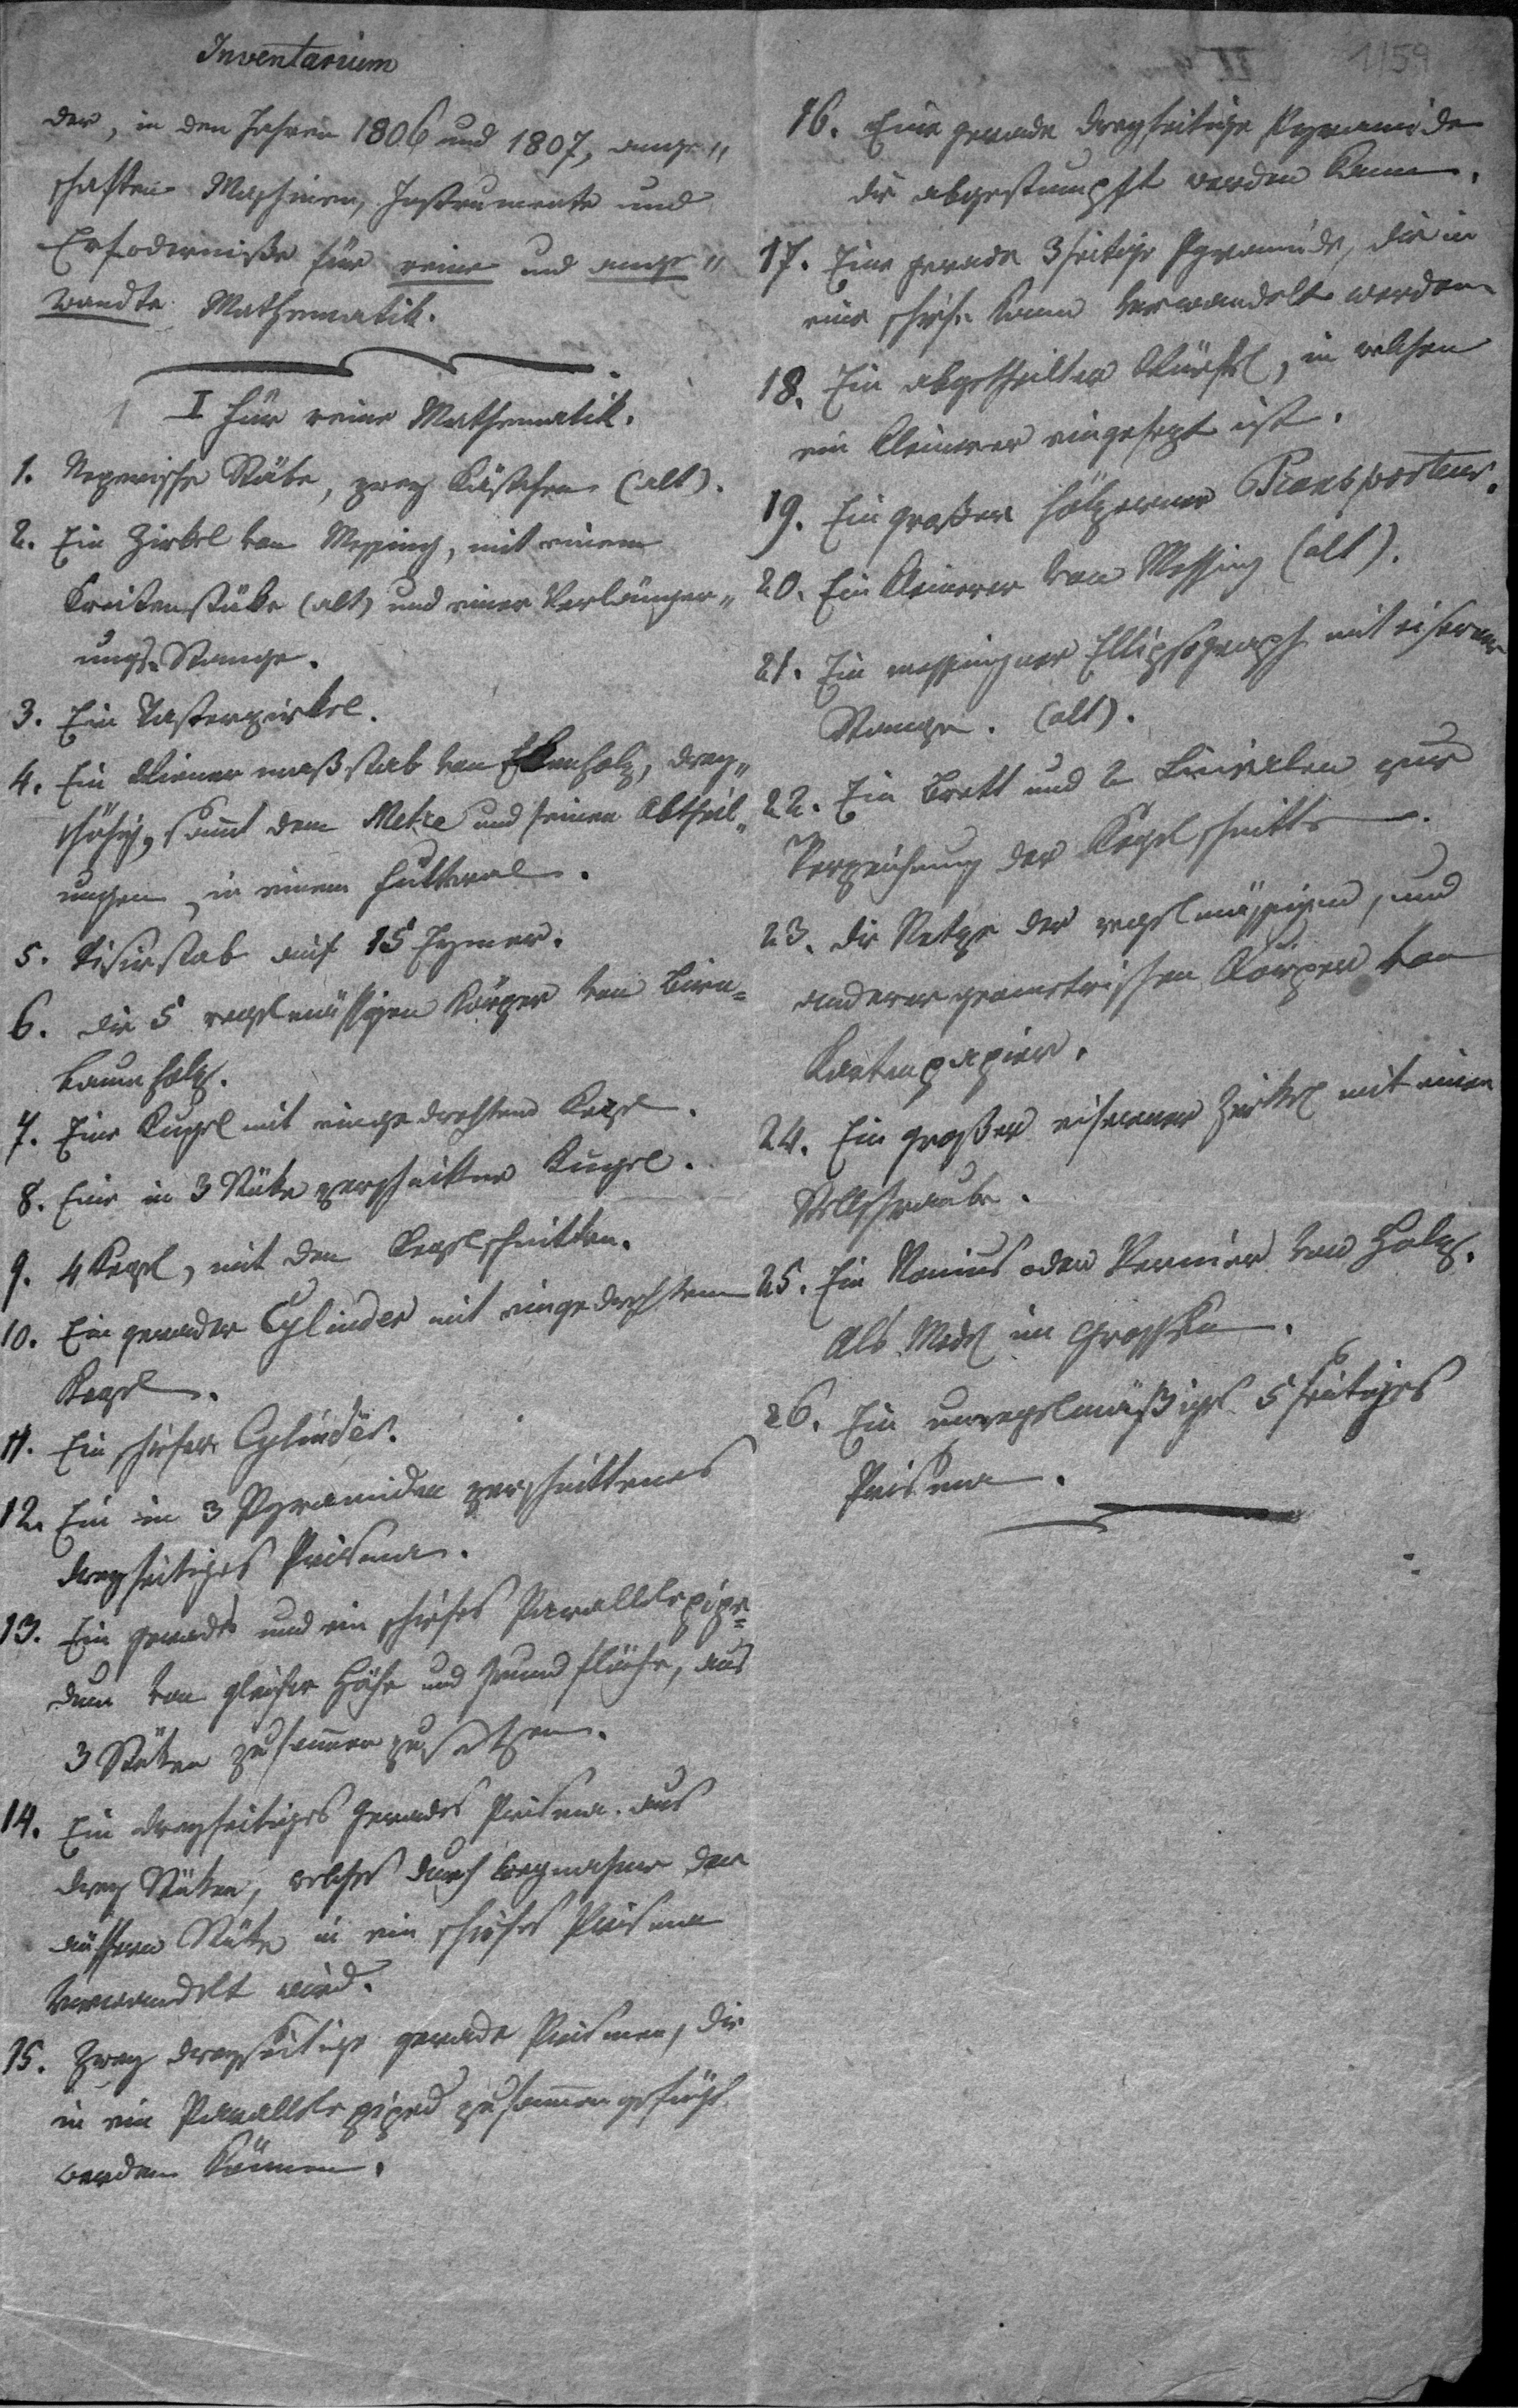 Inventarium
der, in den Jahren 1806 und 1807, ange„
schaften Maschinen, Instrumente und
Erfoderniße für reine und ange„
wandte Mathematik.
I Für reine Mathematik.
1. Neperische Stäbe, zwey Kästchen (alt).
2. Ein Zirkel von Messing, mit einem
Kreidenstüke (alt) und einer Verlänger„
ungs-Stange.
3. Ein Tasterzirkel.
4. Ein Wiener maßstab von Ebenholz, drey„
schühig, sammt dem Metre und seinen Abtheil„
ungen, in einem Futteral.
5. Visirstab auf 15 Eymer.
6. Die 5 regelmässigen Körper von Birn=
baumholz.
7. Eine Kugel mit eingedrehtem Kegel.
8. Eine in 3 Stüke zerschnittene Kugel.
9. 4 Kegel, mit den Kegelschnitten.
10. Ein gerader Cylinder mit eingedrehtem
Kegel.
11. Ein schiefer Cylinder.
12. Ein in 3 Pyramiden zerschnittenes
dreyseitiges Prisma.
13. Ein gerades und ein schiefes Parallelepipe=
dum von gleicher Höhe und Grundfläche, aus
3 Stüken zusammenzusetzen.
14. Ein dreyseitiges gerades Prisma aus
drey Stüken, welches durch wegnahme der
äussern Stüke in ein schiefes Prisma
verwandelt wird.
15. Zwey dreyseitige gerade Prismen, die
in ein Parallelepiped zusammengefügt
werden können.
1/59
16. Eine gerade dreyseitige Pyramide
die abgestumpft werden kann.
17. Eine gerade 3seitige Pyramide, die in
eine schiefe kann verwandelt werden
18. Ein abgetheilter Würfel, in welchen
ein kleinerer eingesezt ist.
19. Ein großer hölzerner Transporteur.
20. Ein kleinerer von Messing (alt).
21. Ein messingner Ellipsograph mit eiserner
Stange. (alt).
22. Ein Brett und 2 Linealen zur
Verzeichnung der Kegelschnitte.
23. Die Netze der regelmässigen, und
anderer geometrischen Körper von
Kartenpapier.
24. Ein großer eiserner Zirkel mit einer
Stellschraube.
25. Ein Nonius oder Vernier von Holz.
Als Model im Grossen.
26. Ein unregelmäßiges 5seitiges
Prisma.